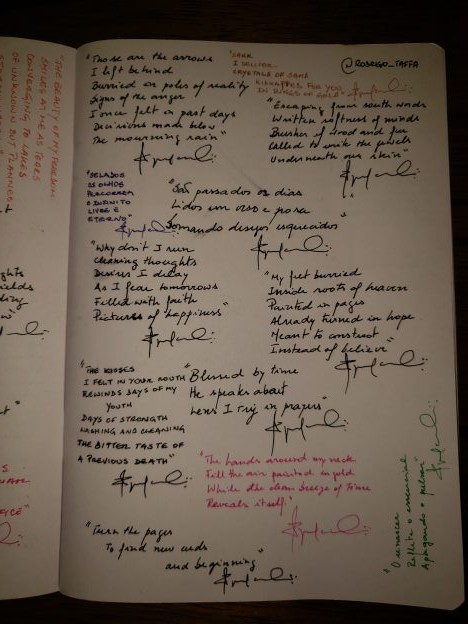 "Those are the arrows
I left behind
Burried on poles of reality
Signs of the anger
I once felt in past days
Decisions made below
The mourning rain"
"DARK
I DELIVER
CRYSTALS OF SAND
KIDNAPPED FOR YOU
IN RINGS OF GOLD"
@RODRIGO_TAFFA
"Escaping from south winds
Written softness of minds
Brushes of wood and fur
Called to write the jewels
Underneath our skin"
"SELADOS
OS OLHOS
PERCORREM
O INFINITO
LIVRE E
ETERNO"
"São passados os dias
Lidos em verso e prosa
Somando desejos esquecidos"
"Why don't I run
Cleaning thoughts
Desires I delay
As I fear tomorrows
Filled with faith
Pictures of happiness"
"My feet burried
Inside roots of heaven
Painted in pages
Already turned in hope
Meant to construct
Instead of believe"
"THE KISSES
I FELT IN YOUR MOUTH
REWINDS DAYS OF MY
YOUTH
DAYS OF STRENGTH
LASHING AND CLEANING
THE BITTER TASTE OF
A PREVIOUS DEATH"
"Blessed by time
He speaks about
Lens I try in prayers"
"The hands around my neck
Fell the air painted in gold
While the clean breeze of time
Reveals itself."
"Turn the pages
To find new ends
and beginning"
"O renascer
Reflete o essencial
Apagando a
"THE BEAUTY OF MY FREEDOM
SMILES AT ME AS TEARS
CONVERGING TO LAKES
OF UNKNOWN BUT PLANNED